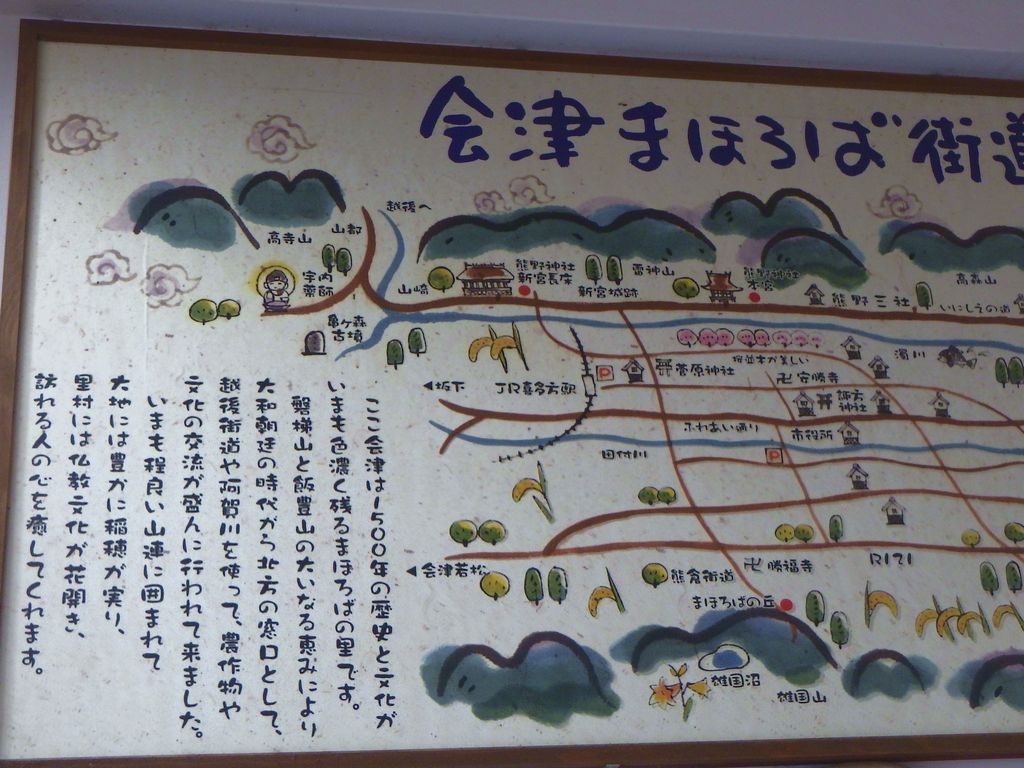 会津まほろば街道
越後へ
高寺山
山都
宇内
薬師
亀ヶ森
古墳
山崎
熊野神社
新宮長床
雷神山
新宮城跡
熊野神社
本宮
熊野三社
高森山
いにしえの道
桜並木が美しい
濁川
菅原神社
卍安勝寺
諏方
神社
◀坂下
JR喜多方駅
P
ふれあい通り
市役所
田付川
P
◀会津若松
熊倉街道
卍勝福寺
R121
まほろばの丘
雄国沼
雄国山
ここ会津は1500年の歴史と文化が
いまも色濃く残るまほろばの里です。
磐梯山と飯豊山の大いなる恵みにより
大和朝廷の時代から北方の窓口として、
越後街道や阿賀川を使って、農作物や
文化の交流が盛んに行われて来ました。
いまも程良い山連に囲まれて
大地には豊かに稲穂が実り、
里村には仏教文化が花開き、
訪れる人の心を癒してくれます。